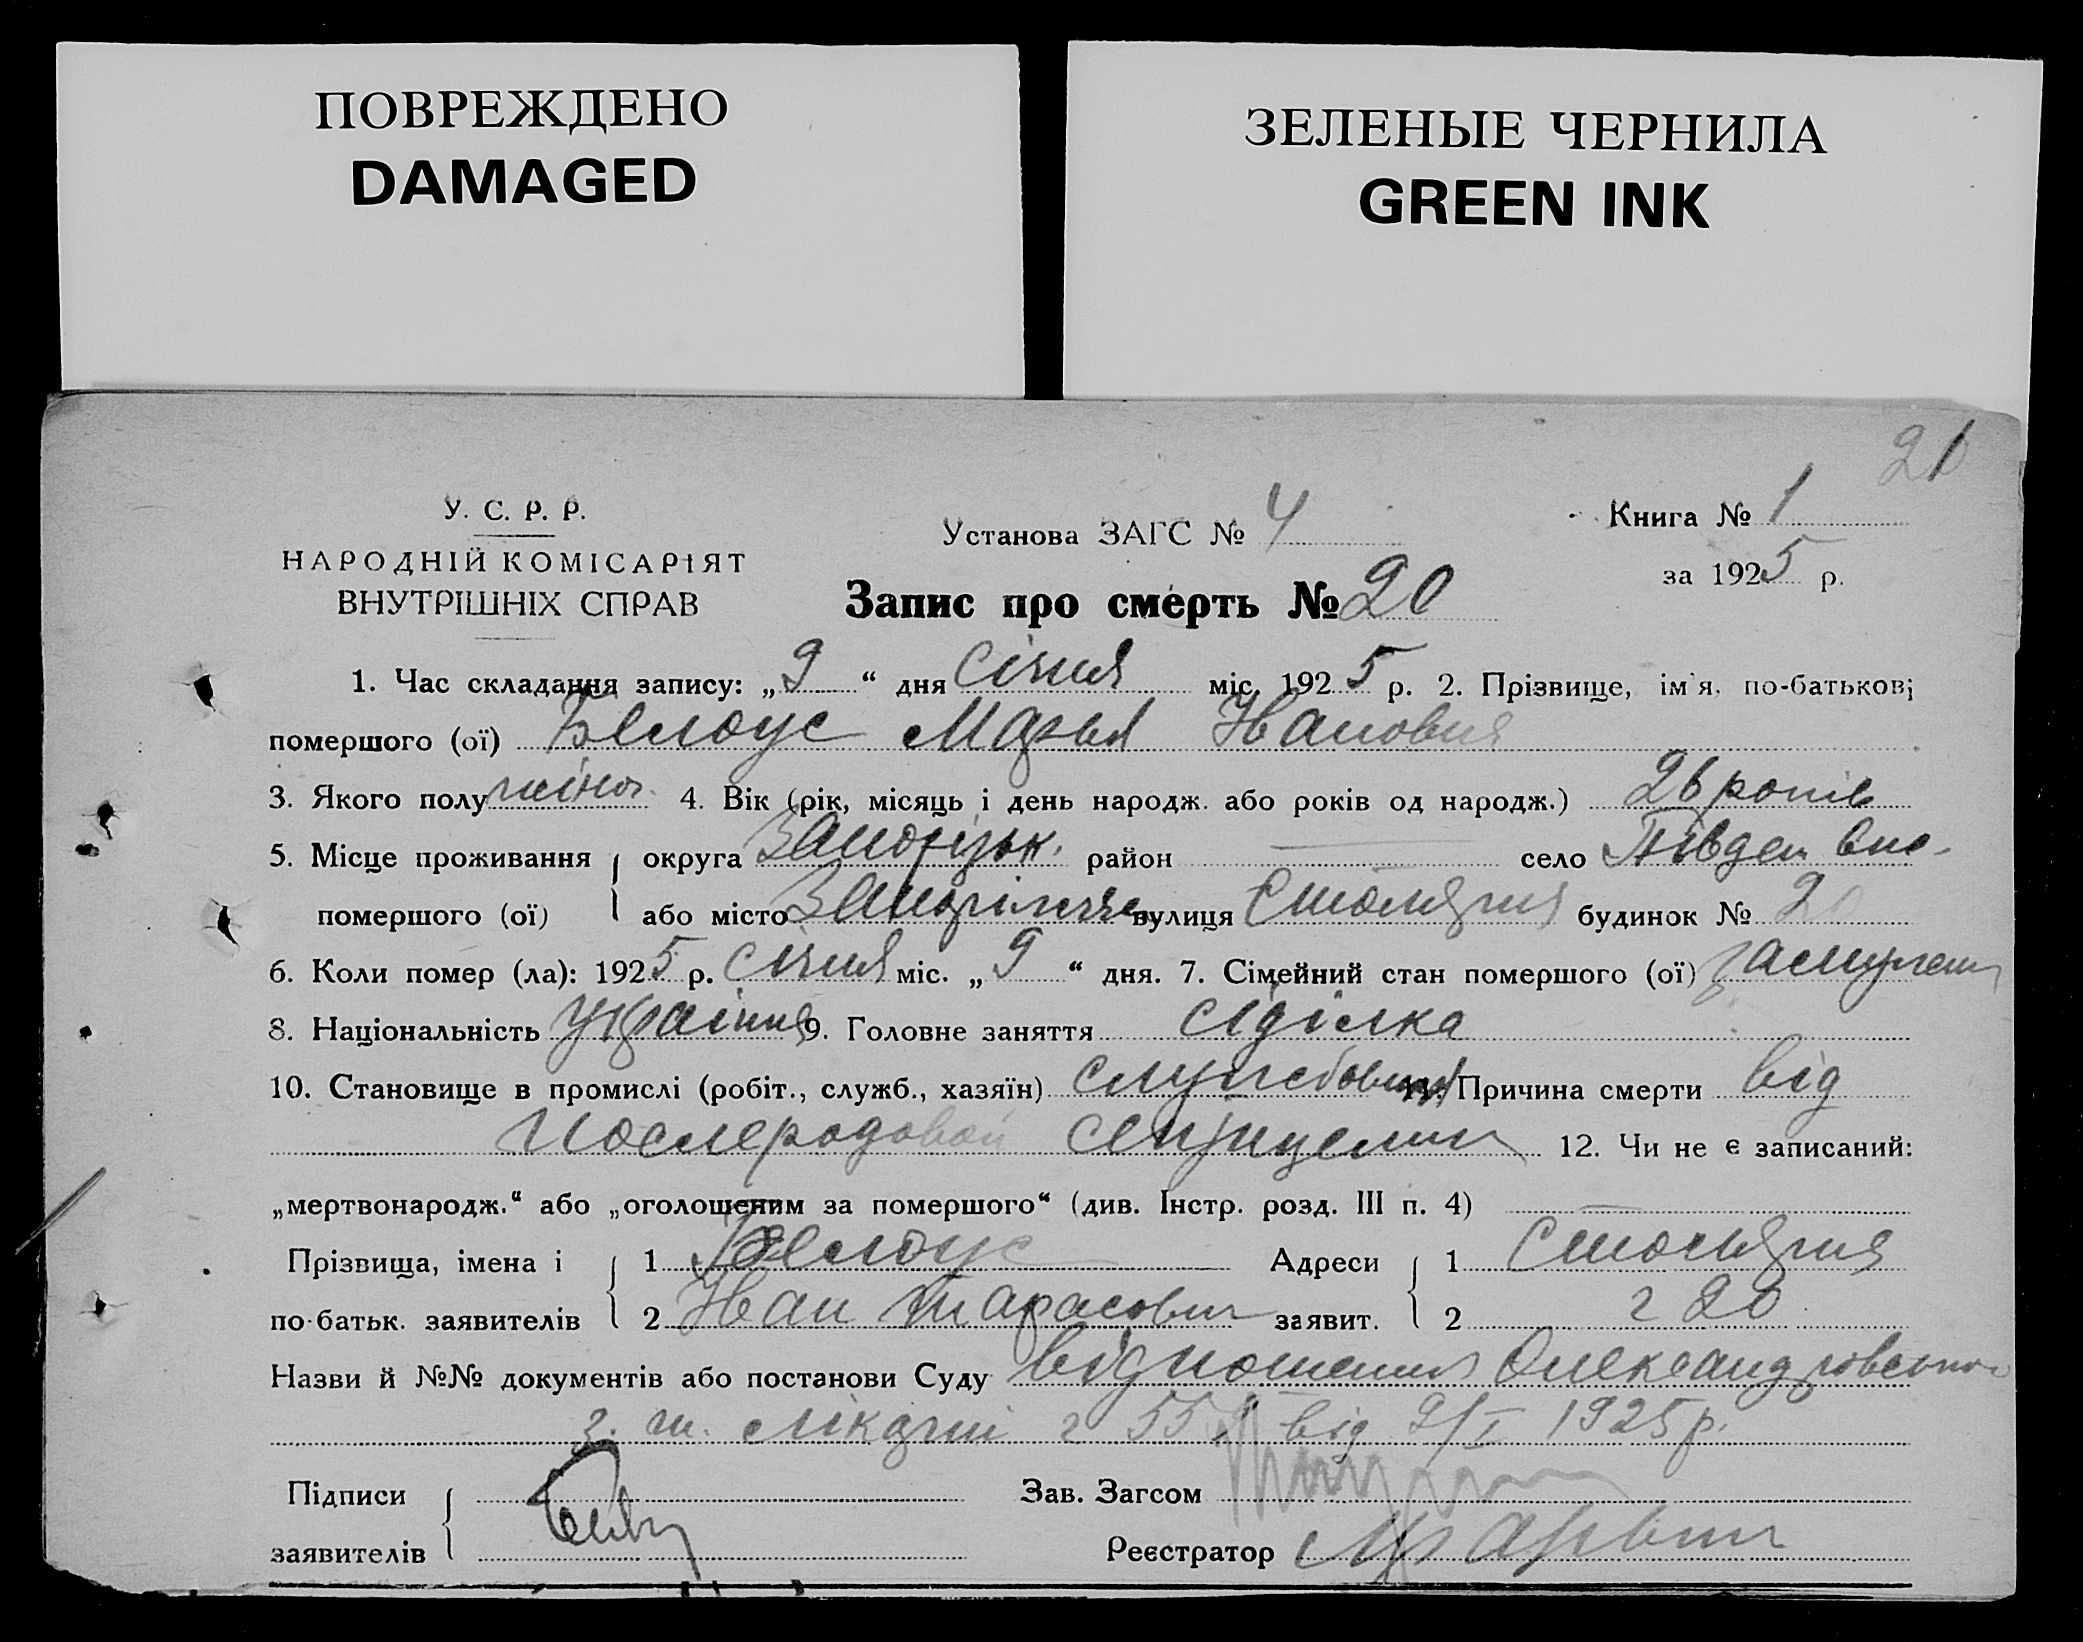 ПОВРЕЖДЕНО
DAMAGED
ЗЕЛЕНЫЕ ЧЕРНИЛА
GREEN INK
21
У. С. Р. Р.
НАРОДНІЙ КОМІСАРІЯТ
ВНУТРІШНІХ СПРАВ
Установа ЗАГС № 4
Книга № 1
за 1925 р.
Запис про смерть № 20
1. Час складання запису: „9“ дня Січня міс. 1925 р. 2. Прізвище, ім'я, по-батькові
помершого (ої) Белоус Марья Ивановна
3. Якого полу жіноч. 4. Вік (рік, місяць і день народж. або років од народж.) 26 років
5. Місце проживання округа Запорізьк. район село Південне
помершого (ої) або місто Запоріжжя вулиця Столярня будинок № 20
6. Коли помер (ла): 1925 р. Січня міс. „9“ дня. 7. Сімейний стан помершого (ої) замужем
8. Національність Україн 9. Головне заняття сиділка
10. Становище в промислі (робіт., служб., хазяїн) службовець 11. Причина смерти від
Послеродовой септицемии 12. Чи не є записаний:
„мертвонародж.“ або „оголошеним за помершого“ (див. Інстр. розд. III п. 4)
Прізвища, імена і 1 Белоус Адреси 1 Столярня
по-батьк. заявителів 2 Иван Тарасович заявит. 2 20
Назви й №№ документів або постанови Суду відношення Олександрівської
з. ж. лікарні 55 від 9/I 1925 р.
Підписи Зав. Загсом
заявителів Реєстратор